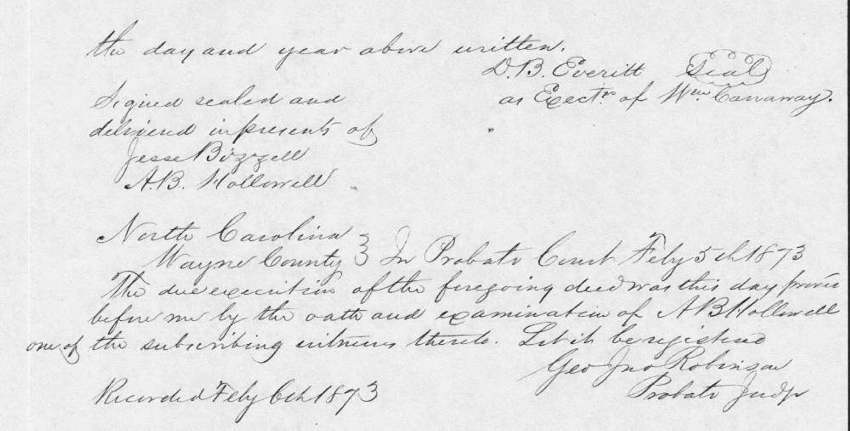 the day and year above written.
D.B. Everitt Seal
as Exectr of Wm Carraway.
Signed sealed and
delivered in presents of
Jesse Bizzell
A.B. Hollowell
North Carolina
Wayne County } In Probate Court Feby 5th 1873
The due execution of the foregoing deed was this day proven
before me by the oath and examination of A B Hollowell
one of the subscribing witness thereto. Let it be registered
Geo Jno Robinson
Probate Judge
Recorded Feby 6th 1873